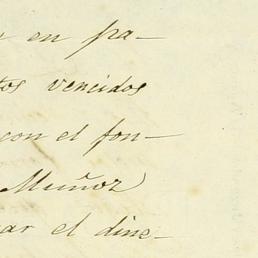 en pa-
tos vencidos
con el fon-
Muñoz
ar el dine-